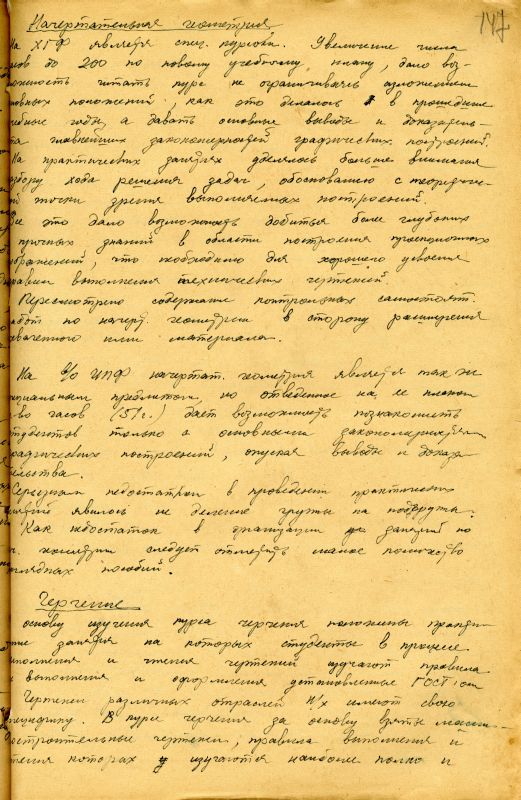 147
Начертательная геометрия
На ХГФ является спец. курсом. Увеличение числа
часов до 200 по новому учебному плану, дало воз-
можность читать курс не ограничиваясь изложением
основных положений, как это делалось в прошедшие
учебные годы, а давать основные выводы и доказатель-
ства главнейших закономерностей графических построений.
На практических занятиях уделялось больше внимания
разбору хода решения задач, обоснованию с теоретиче-
ской точки зрения выполняемых построений.
это дало возможность добиться более глубоких
и прочных знаний в области построения проекционных
изображений, что необходимо для хорошего усвоения
правил выполнения технических чертежей.
Пересмотрено содержание контрольных самостоят.
работ по начерт. геометрии в сторону расширения
охваченного ими материала.
На ф/о ИПФ начертат. геометрия является так же
специальным предметом, но отведенное на ее планом
к-во часов (51 г.) дает возможность познакомить
студентов только с основными закономерностями
графических построений, опуская выводы и доказа-
тельства.
Серьезным недостатком в проведении практических
занятий явилось не деление группы на подгруппы.
Как недостаток в организации занятий по
н. геометрии следует отметить малое количество
наглядных пособий.
Черчение
основу изучения курса черчения положены практи-
ческие занятия на которых студенты в процессе
выполнения и чтения чертежей изучают правила
выполнения и оформления установленные ГОСТ'ом
Чертежи различных отраслей н/х имеют свою
специфику. В курсе черчения за основу взяты машин-
остроительные чертежи, правила выполнения и
чтения которых изучаются наиболее полно и